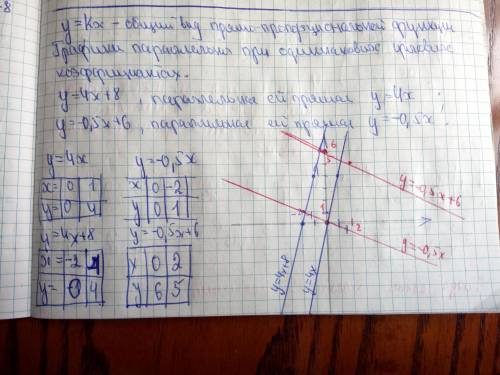 y=Kx - общий вид прямо пропорциональной функции
Графики параллельны при одинаковых угловых
коэффициентах.
y=4x+8, параллельна ей прямая y=4x;
y=-0,5x+6, параллельная ей прямая y=-0,5x;
y=4x
x= 0 1
y= 0 4
y=-0,5x
x 0 -2
y 0 1
y=4x+8
x= -2 -1
y= 0 4
y=-0,5x+6
x 0 2
y 6 5
6
5
1
2
y=-0,5x+6
y=-0,5x
y=4x+8
y=4x